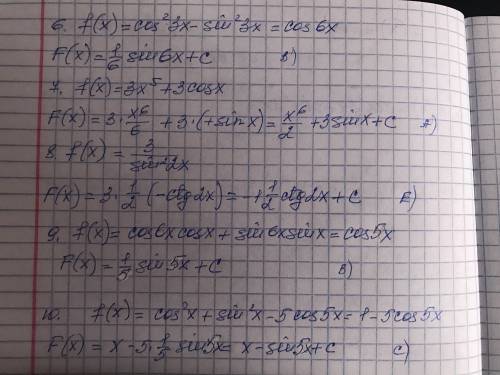 6. f(x)=cos²3x-sin²3x=cos6x
F(x)=1/6 sin6x+C B)
7. f(x)=3x⁵+3cosx
F(x)=3·x⁶/6+3·(+sinx)=x⁶/2+3sinx+C A)
8. f(x)=3/sin²2x
F(x)=3·1/2(-ctg2x)=-1 1/2 ctg2x+C E)
9. f(x)=cos6xcosx+sin6xsinx=cos5x
F(x)=1/5 sin5x+C B)
10. f(x)=cos²x+sin²x-5cos5x=1-5cos5x
F(x)=x-5·1/5 sin5x=x-sin5x+C C)